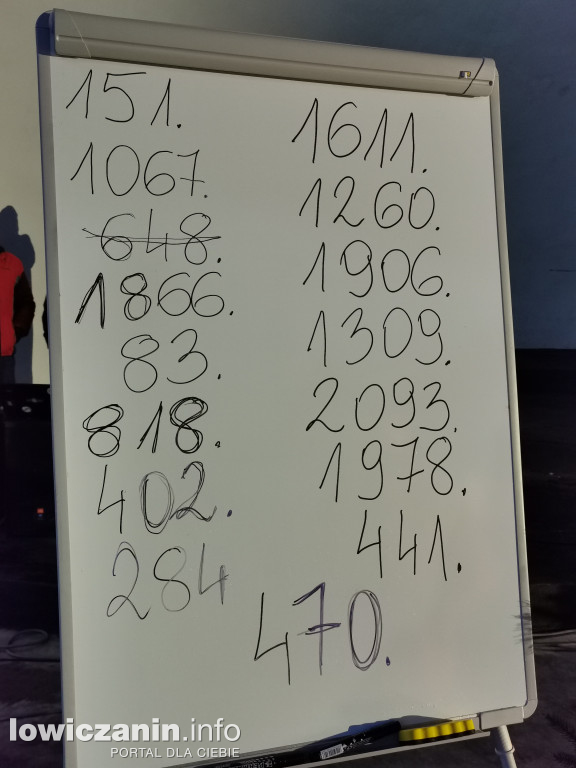 151.
1067.
648.
1866.
83.
818.
402.
284
1611.
1260.
1906.
1309.
2093.
1978.
441.
470.
lowiczanin.info
PORTAL DLA CIEBIE